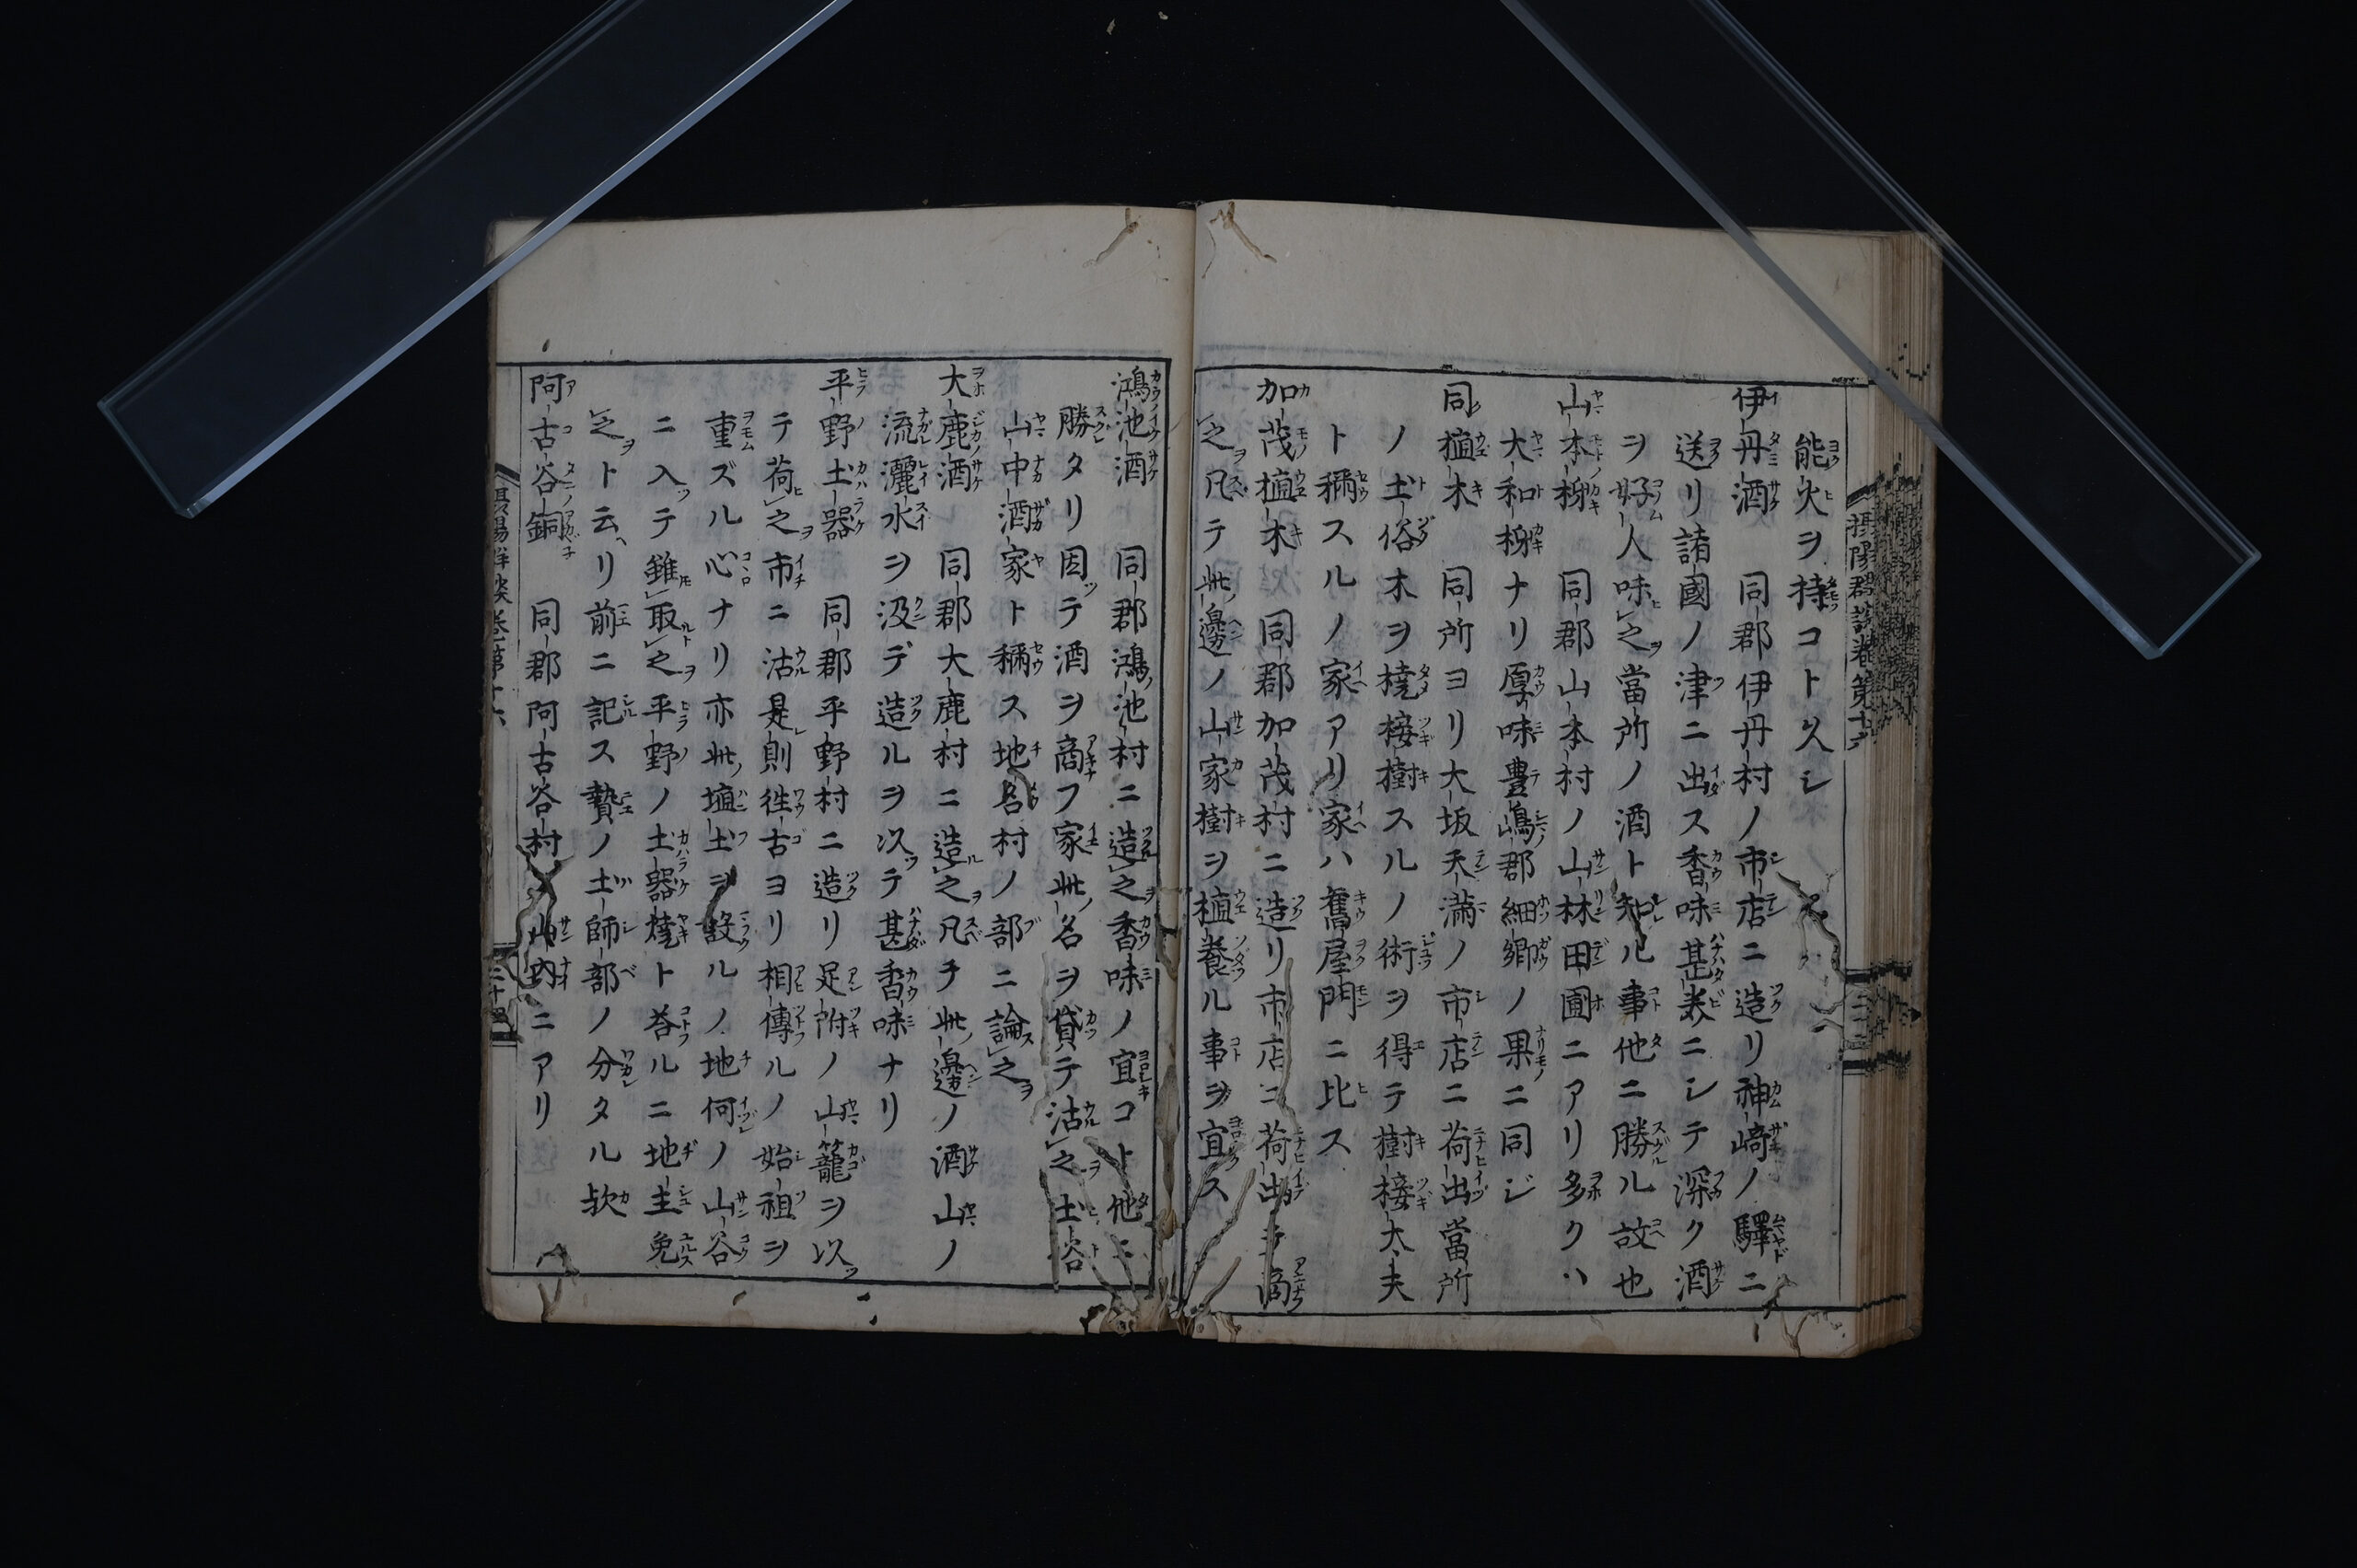 能火ヲ持コト久シ
伊丹酒 同郡伊丹村ノ市店ニ造リ神﨑ノ驛ニ
送リ諸國ノ津ニ出ス香味甚美ニシテ深ク酒
ヲ好人味之當所ノ酒ト知ル事他ニ勝ル故也
山本柳 同郡山本村ノ山林田圃ニアリ多クハ
大和柳ナリ厚味豊嶋郡細郷ノ果ニ同ジ
同植木 同所ヨリ大坂天満ノ市店ニ荷出當所
ノ土俗木ヲ接樹スルノ術ヲ得テ樹接太夫
ト稱スルノ家アリ家ハ舊屋門ニ比ス
加茂植木 同郡加茂村ニ造リ市店ニ荷出テ商
之凡テ此邊ノ山家樹ヲ植養ル事ヲ宜ス
鴻池酒 同郡鴻池村ニ造之香味ノ宜コト他ニ
勝タリ因テ酒ヲ商フ家此名ヲ貸テ沽之土谷
山中酒家ト稱ス地名村ノ部ニ論之
大鹿酒 同郡大鹿村ニ造之凡チ此邊ノ酒山ノ
流灑水ヲ汲デ造ルヲ以テ甚香味ナリ
平野土器 同郡平野村ニ造リ足附ノ山籠ヲ以
テ荷之市ニ沽是則徃古ヨリ相傳ルノ始祖ヲ
重ズル心ナリ亦此埴土ヲ設ルノ地何ノ山谷
ニ入テ雖取之平野ノ土器燒ト荅ルニ地主免
之ト云リ前ニ記ス贄ノ土師部ノ分タル欤
阿古谷銅 同郡阿古谷村山内ニアリ
攝陽群談卷第十六